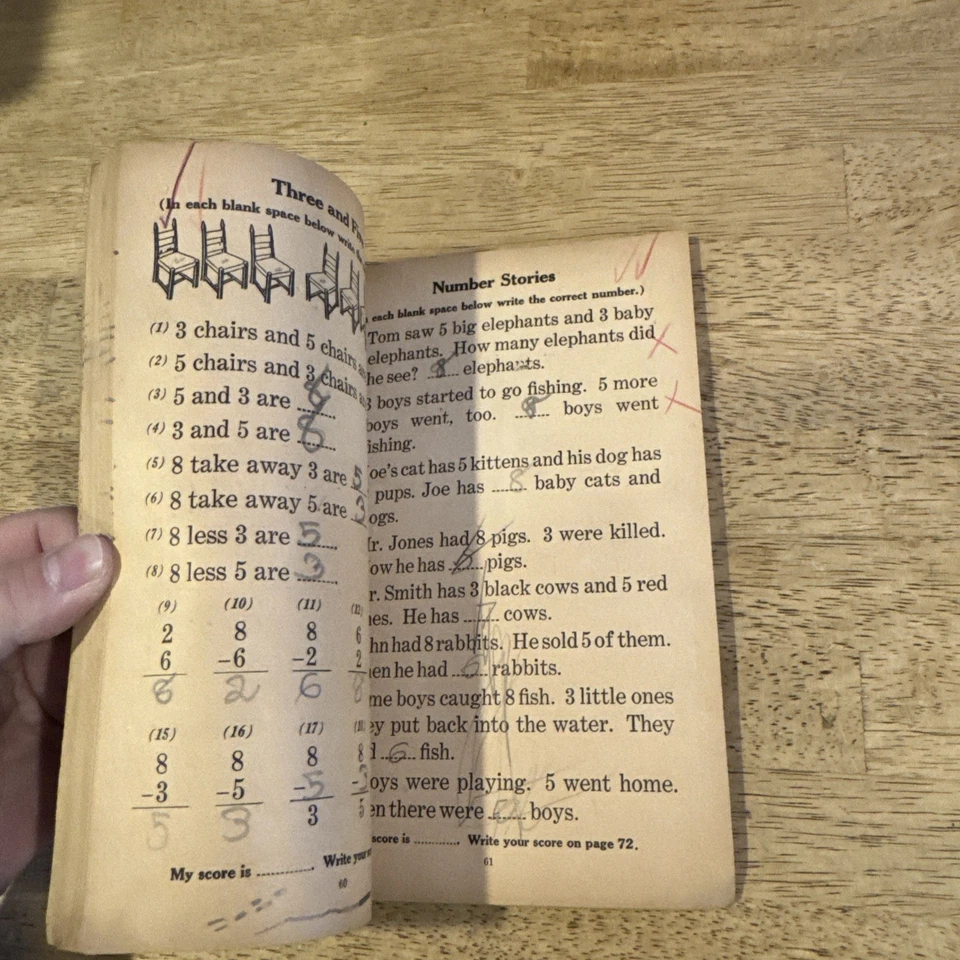 Three and
(In each blank space below write
(1) 3 chairs and 5 chairs
(2) 5 chairs and 3 chairs
(3) 5 and 3 are
(4) 3 and 5 are 8
(5) 8 take away 3 are 5
(6) 8 take away 5 are 3
(7) 8 less 3 are 5
(8) 8 less 5 are 3
(9) (10) (11)
2 8 8 6
6 -6 -2 2
8 2 6 8
(15) (16) (17)
8 8 8 8
-3 -5 -5 -3
5 3 3 5
My score is ............. Write your
60
Number Stories
each blank space below write the correct number.)
Tom saw 5 big elephants and 3 baby
elephants. How many elephants did
he see? 8 elephants.
3 boys started to go fishing. 5 more
boys went, too. 8 boys went
ishing.
oe's cat has 5 kittens and his dog has
pups. Joe has 8 baby cats and
ogs.
r. Jones had 8 pigs. 3 were killed.
ow he has pigs.
r. Smith has 3 black cows and 5 red
es. He has 7 cows.
hn had 8 rabbits. He sold 5 of them.
en he had 6 rabbits.
me boys caught 8 fish. 3 little ones
ey put back into the water. They
d 6 fish.
oys were playing. 5 went home.
en there were boys.
score is ............. Write your score on page 72.
61